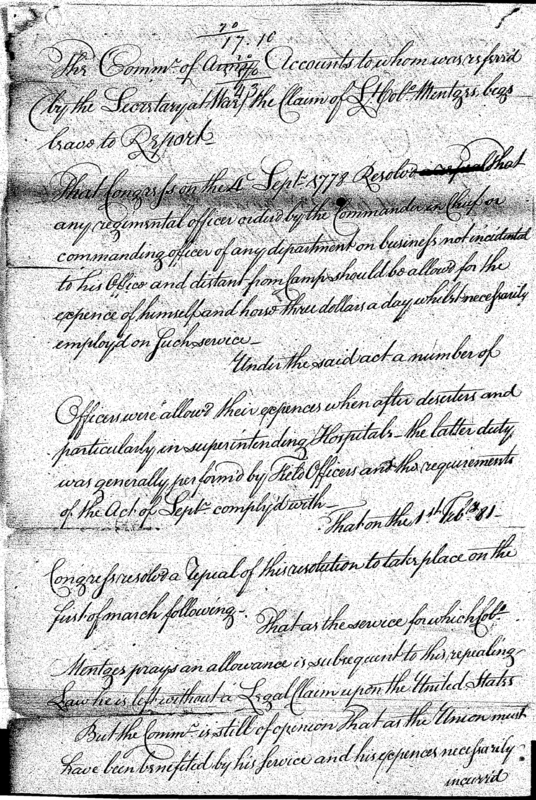 20
17.10
The Commr. of Army Accounts to whom was referrd
43
(by the Secretary at War) the Claim of Lt. Colo. Mentges begs
leave to Report
That Congress on the 4th Septr. 1778 Resolved that
any regimental officer orderd by the Commander in Chief or
commanding officer of any department on business not incidental
to his Office and distant from Camp should be allowed for the
expence of himself and horse three dollars a day whilst necessarily
employ'd on such service—
Under the said act a number of
Officers were allow'd their expences when after deserters and
particularly in superintending Hospitals—the latter duty
was generally perform'd by Field Officers and the requirements
of the Act of Septr. comply'd with—
That on the 1st. Feby. 81—
Congress resolvd a repeal of this resolution to take place on the
first of march following—
That as the service for which Colo.
Mentges prays an allowance is subsequent to this repealing
Law he is left without a Legal Claim upon the United States
But the Commr. is still of opinion That as the Union must
have been benefited by his service and his expences necessarily
incurrd